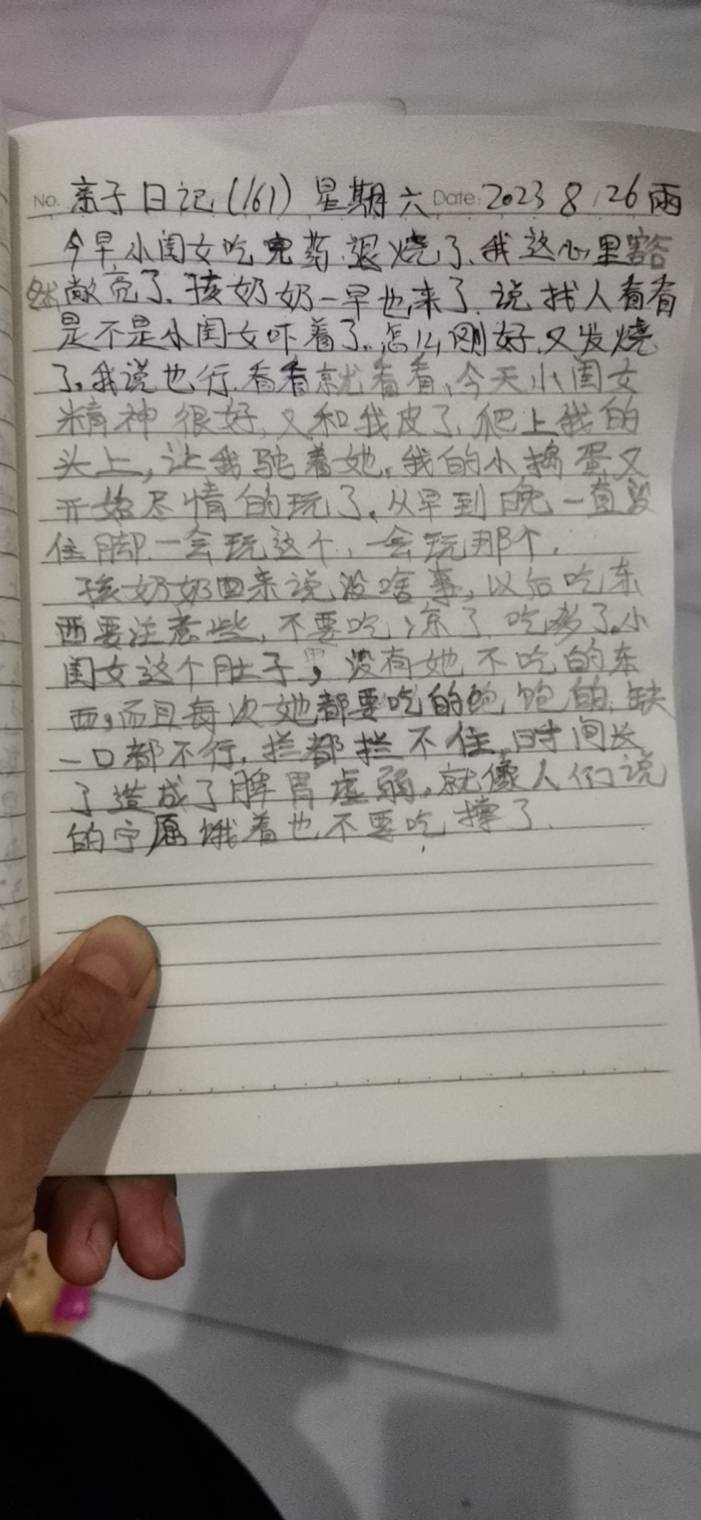 No. 亲子日记(161) 星期六 Date: 2023 8.26 雨
今早小闺女吃完药.退烧了.我这心里豁
然敞亮了.孩奶奶一早也来了.说找人看看
是不是小闺女吓着了.怎么刚好.又发烧
了.我说也行.看看就看看.今天小闺女
精神很好,又和我皮了.爬上我的
头上,让我驼着她.我的小捣蛋又
开始尽情的玩了.从早到晚一直没
住脚.一会玩这个,一会玩那个.
孩奶奶回来说没啥事,以后吃东
西要注意些,不要吃凉了.吃多了.小
闺女这个肚子,没有她不吃的东
西,而且每次她都要吃的饱饱的.缺
一口都不行.拦都拦不住.时间长
了造成了脾胃虚弱.就像人们说
的宁愿饿着也不要吃撑了.